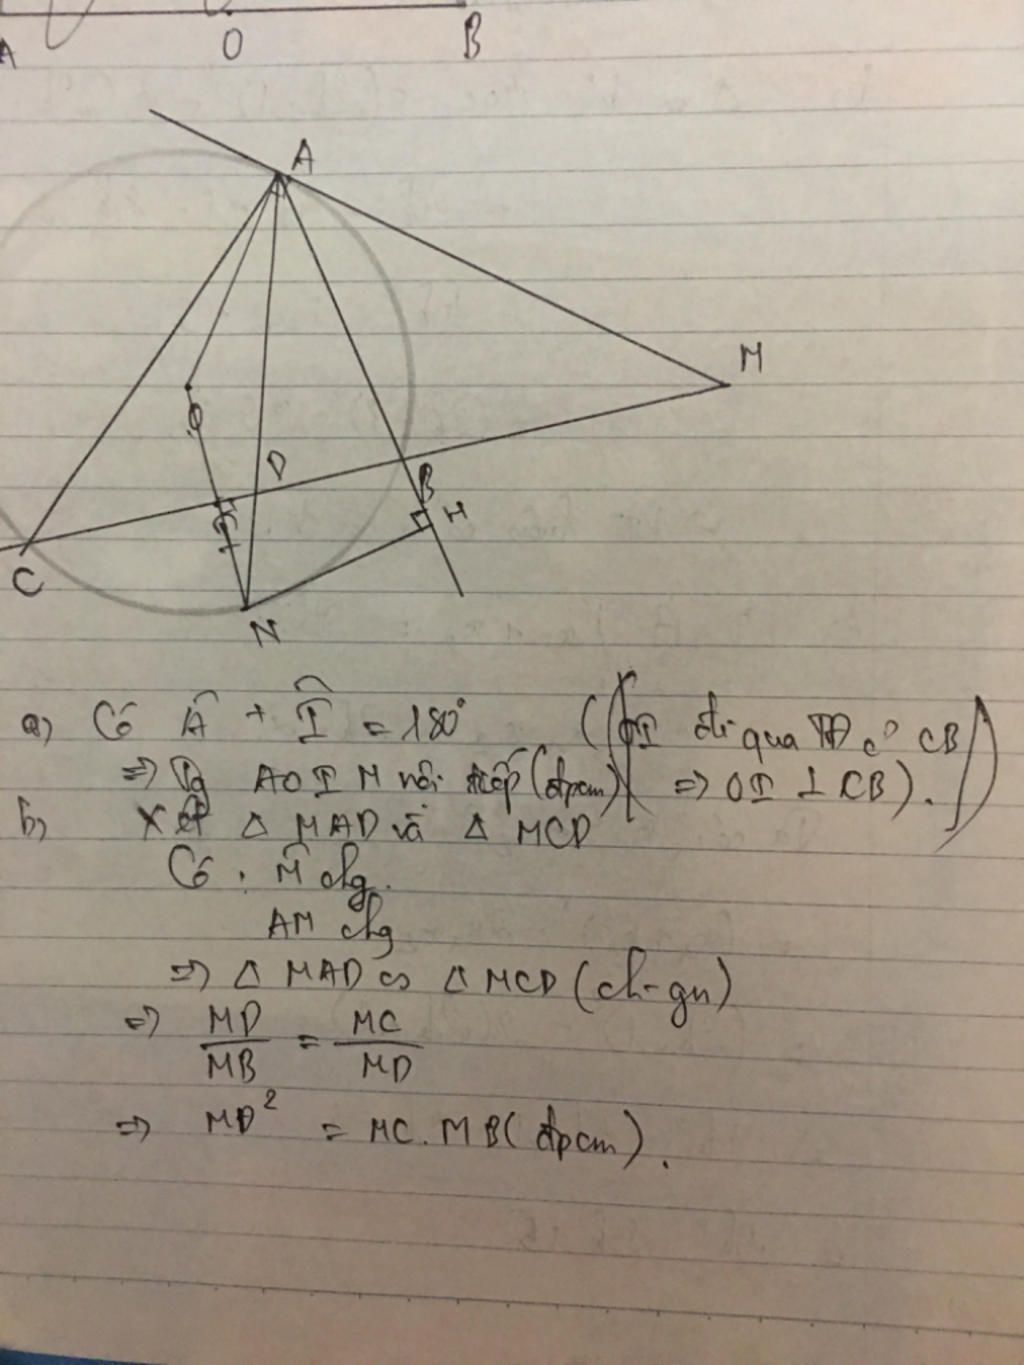 A O B
A
M
O
D
B
H
I
C
N
a) Có Â + Î = 180° (OI đi qua TĐ c° CB
=> Tg AOIM nội tiếp (đpcm) => OI ⊥ CB).
b) Xét Δ MAD và Δ MCD
Có: M̂ chg.
AM chg
=> Δ MAD ∽ Δ MCD (ch-gn)
=> MD/MB = MC/MD
=> MD² = MC.MB (đpcm).